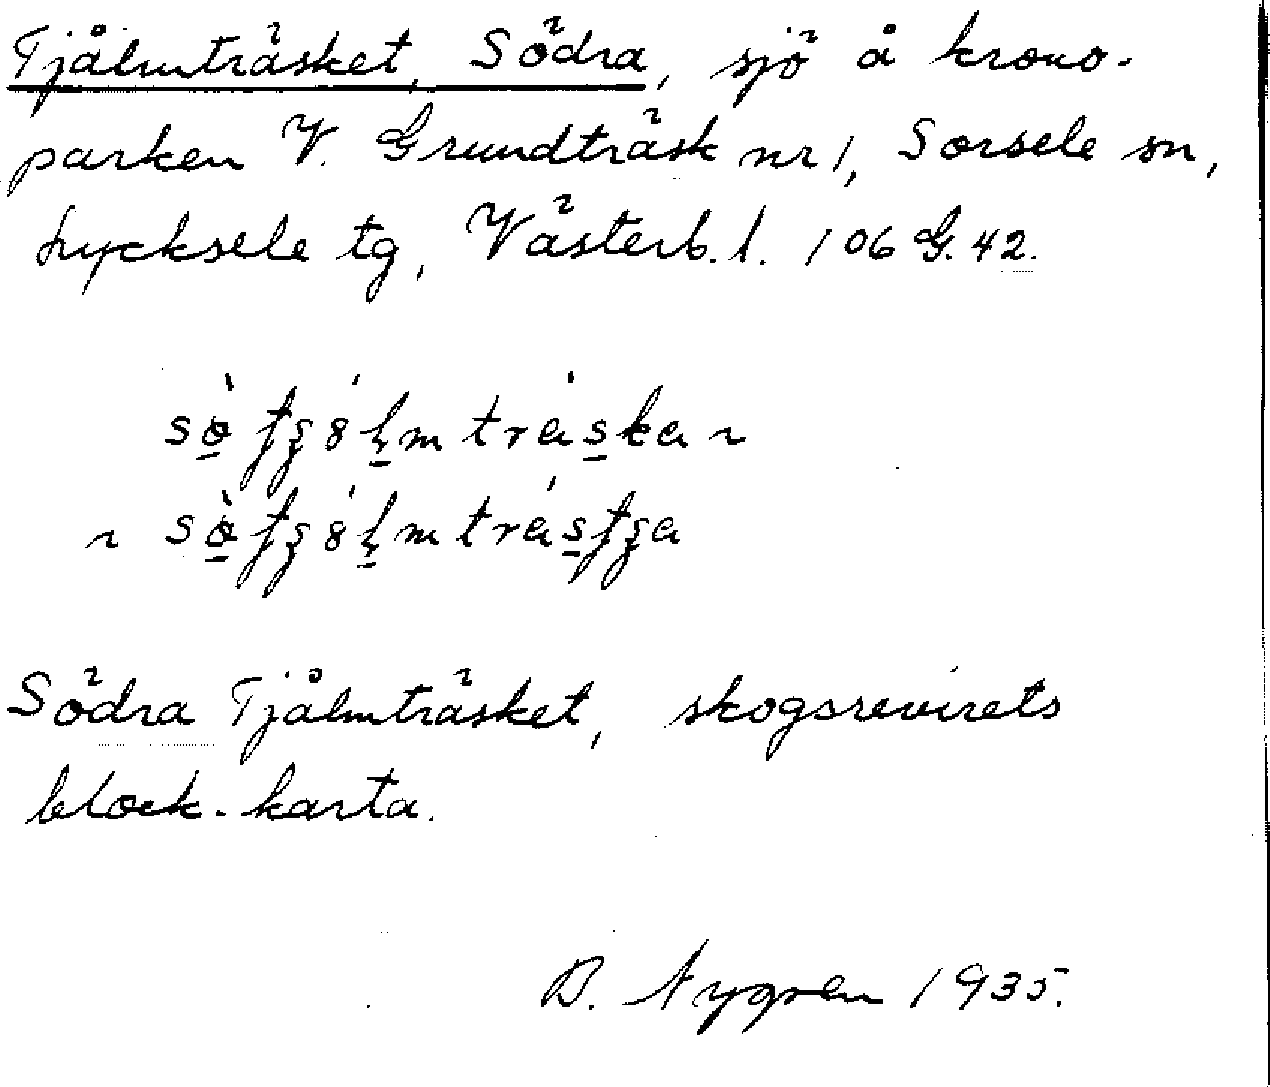 Tjålmträsket, Södra, sjö å krono-
parken V. Grundträsk nr 1, Sorsele sn,
Lycksele tg, Västerb. l. 106 G. 42.
Södra Tjålmträsket, skogsrevirets
block-karta.
B. Nygren 1935.